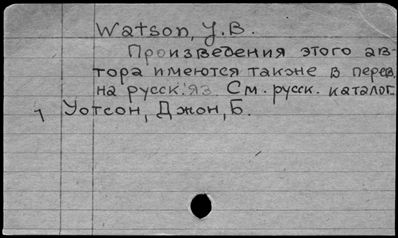 Watson, J.B.
Произведения этого ав-
тора имеются также в перев.
на русск. яз. См. русск. каталог.
1 Уотсон, Джон, Б.